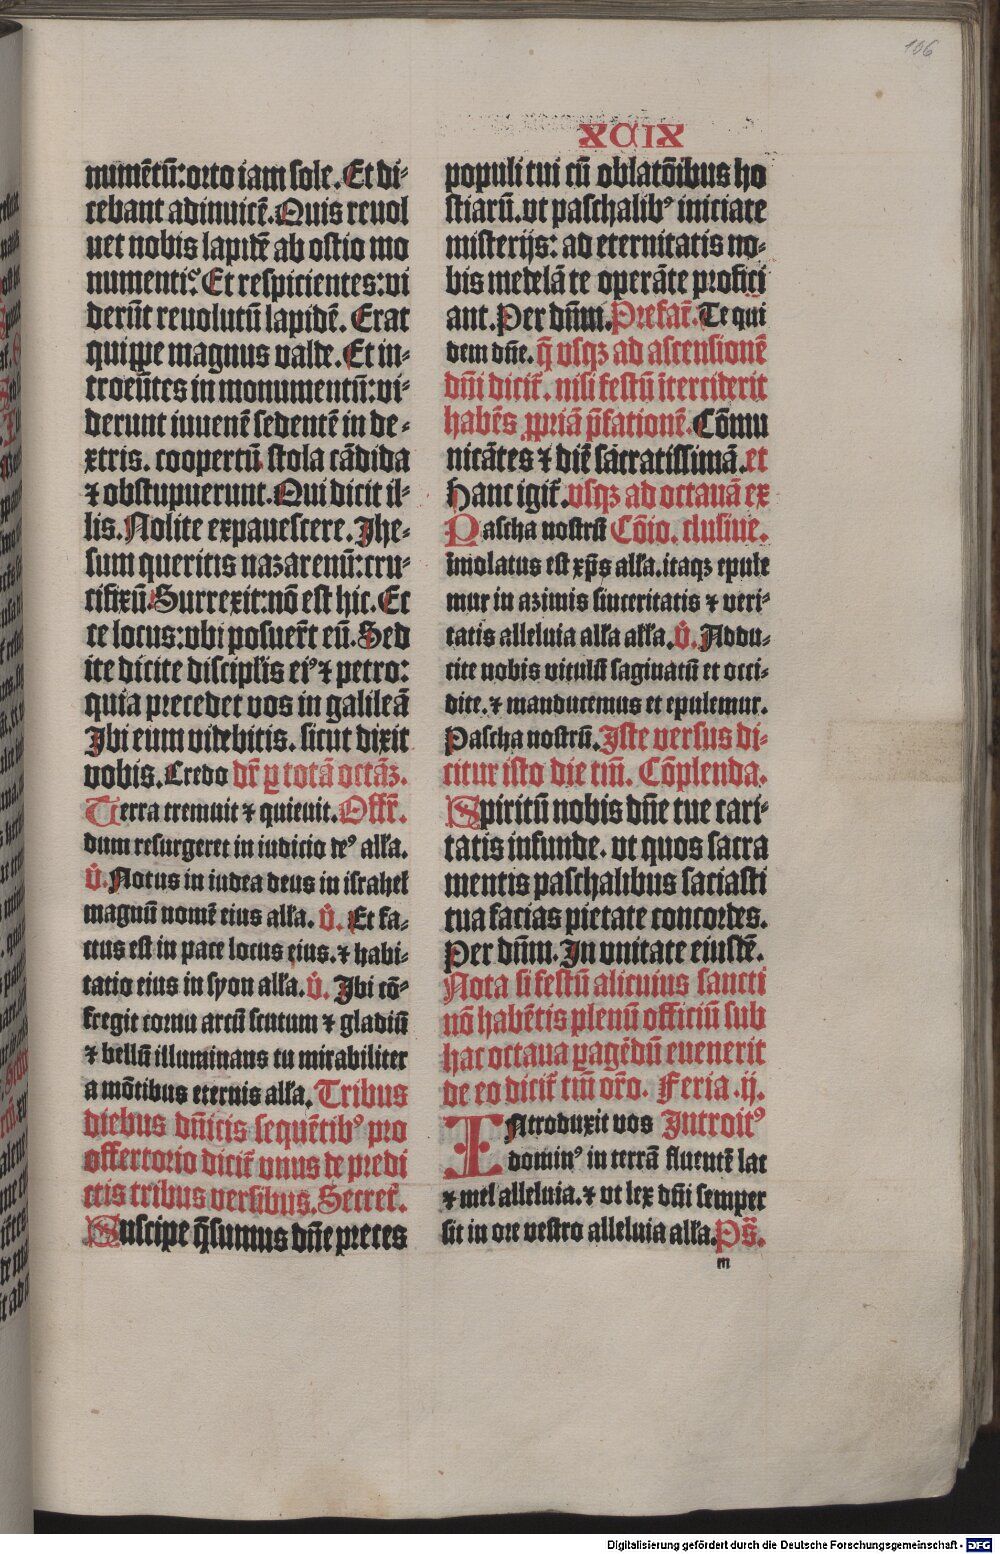 106
XCIX
numētū: orto iam sole. Et di-
cebant adinuicē. Quis reuol
uet nobis lapidē ab ostio mo
numenti? Et respicientes: vi
derūt reuolutū lapidē. Erat
quippe magnus valde. Et in-
troeūtes in monumentū: vi-
derunt iuuenē sedentē in de-
xtris. coopertū stola cādida
⁊ obstupuerunt. Qui dicit il-
lis. Nolite expauescere. Ihe-
sum queritis nazarenū: cru-
cifixū. Surrexit: nō est hic. Ec
ce locus: vbi posuer̄t eū. Sed
ite dicite discipl̄is eiꝰ ⁊ petro:
quia precedet vos in galileā
Ibi eum videbitis. sicut dixit
vobis. Credo dr̄ ꝑ totā octāꝫ.
Terra tremuit ⁊ quieuit. Offr̄.
dum resurgeret in iudicio deꝰ all̄a.
V̊. Notus in iudea deus in israhel
magnū nomē eius all̄a. V̊. Et fa-
ctus est in pace locus eius. ⁊ habi-
tatio eius in syon all̄a. V̊. Ibi cō-
fregit cornu arcū scutum ⁊ gladiū
⁊ bellū illuminans tu mirabiliter
a mōtibus eternis all̄a. Tribus
diebus dn̄icis sequētibꝰ pro
offertorio dicit̄ vnus de predi
ctis tribus versibus. Secret̄.
Suscipe q̄sumus dn̄e preces
populi tui cū oblatōibus ho
stiarū. vt paschalibꝰ iniciate
misterijs: ad eternitatis no-
bis medelā te operāte profici
ant. Per dn̄m. Prefat̄. Te qui
dem dn̄e. q̄ vsqꝫ ad ascensionē
dn̄i dicit̄. nisi festū īterciderit
habēs ꝓpriā p̄fationē. Cōmu
nicātes ⁊ diē sacratissimā. et
Hanc igit̄. vsqꝫ ad octauā ex
Pascha nostrū Cōio. clusiue.
īmolatus est xp̄s all̄a. itaqꝫ epule
mur in azimis sinceritatis ⁊ veri-
tatis alleluia all̄a all̄a. V̊. Addu-
cite nobis vitulū saginatū et occi-
dite. ⁊ manducemus et epulemur.
Pascha nostrū. Iste versus di-
citur isto die tm̄. Cōplenda.
Spiritū nobis dn̄e tue cari-
tatis infunde. vt quos sacra
mentis paschalibus saciasti
tua facias pietate concordes.
Per dn̄m. In vnitate eiusdē.
Nota si festū alicuius sancti
nō habētis plenū officiū sub
hac octaua ꝑagēdū euenerit
de eo dicit̄ tm̄ oro̅. Feria .ij.
INtroduxit vos Introitꝰ
dominꝰ in terrā fluentē lac
⁊ mel alleluia. ⁊ vt lex dn̄i semper
sit in ore vestro alleluia all̄a. Ps̄.
m
Digitalisierung gefördert durch die Deutsche Forschungsgemeinschaft - DFG